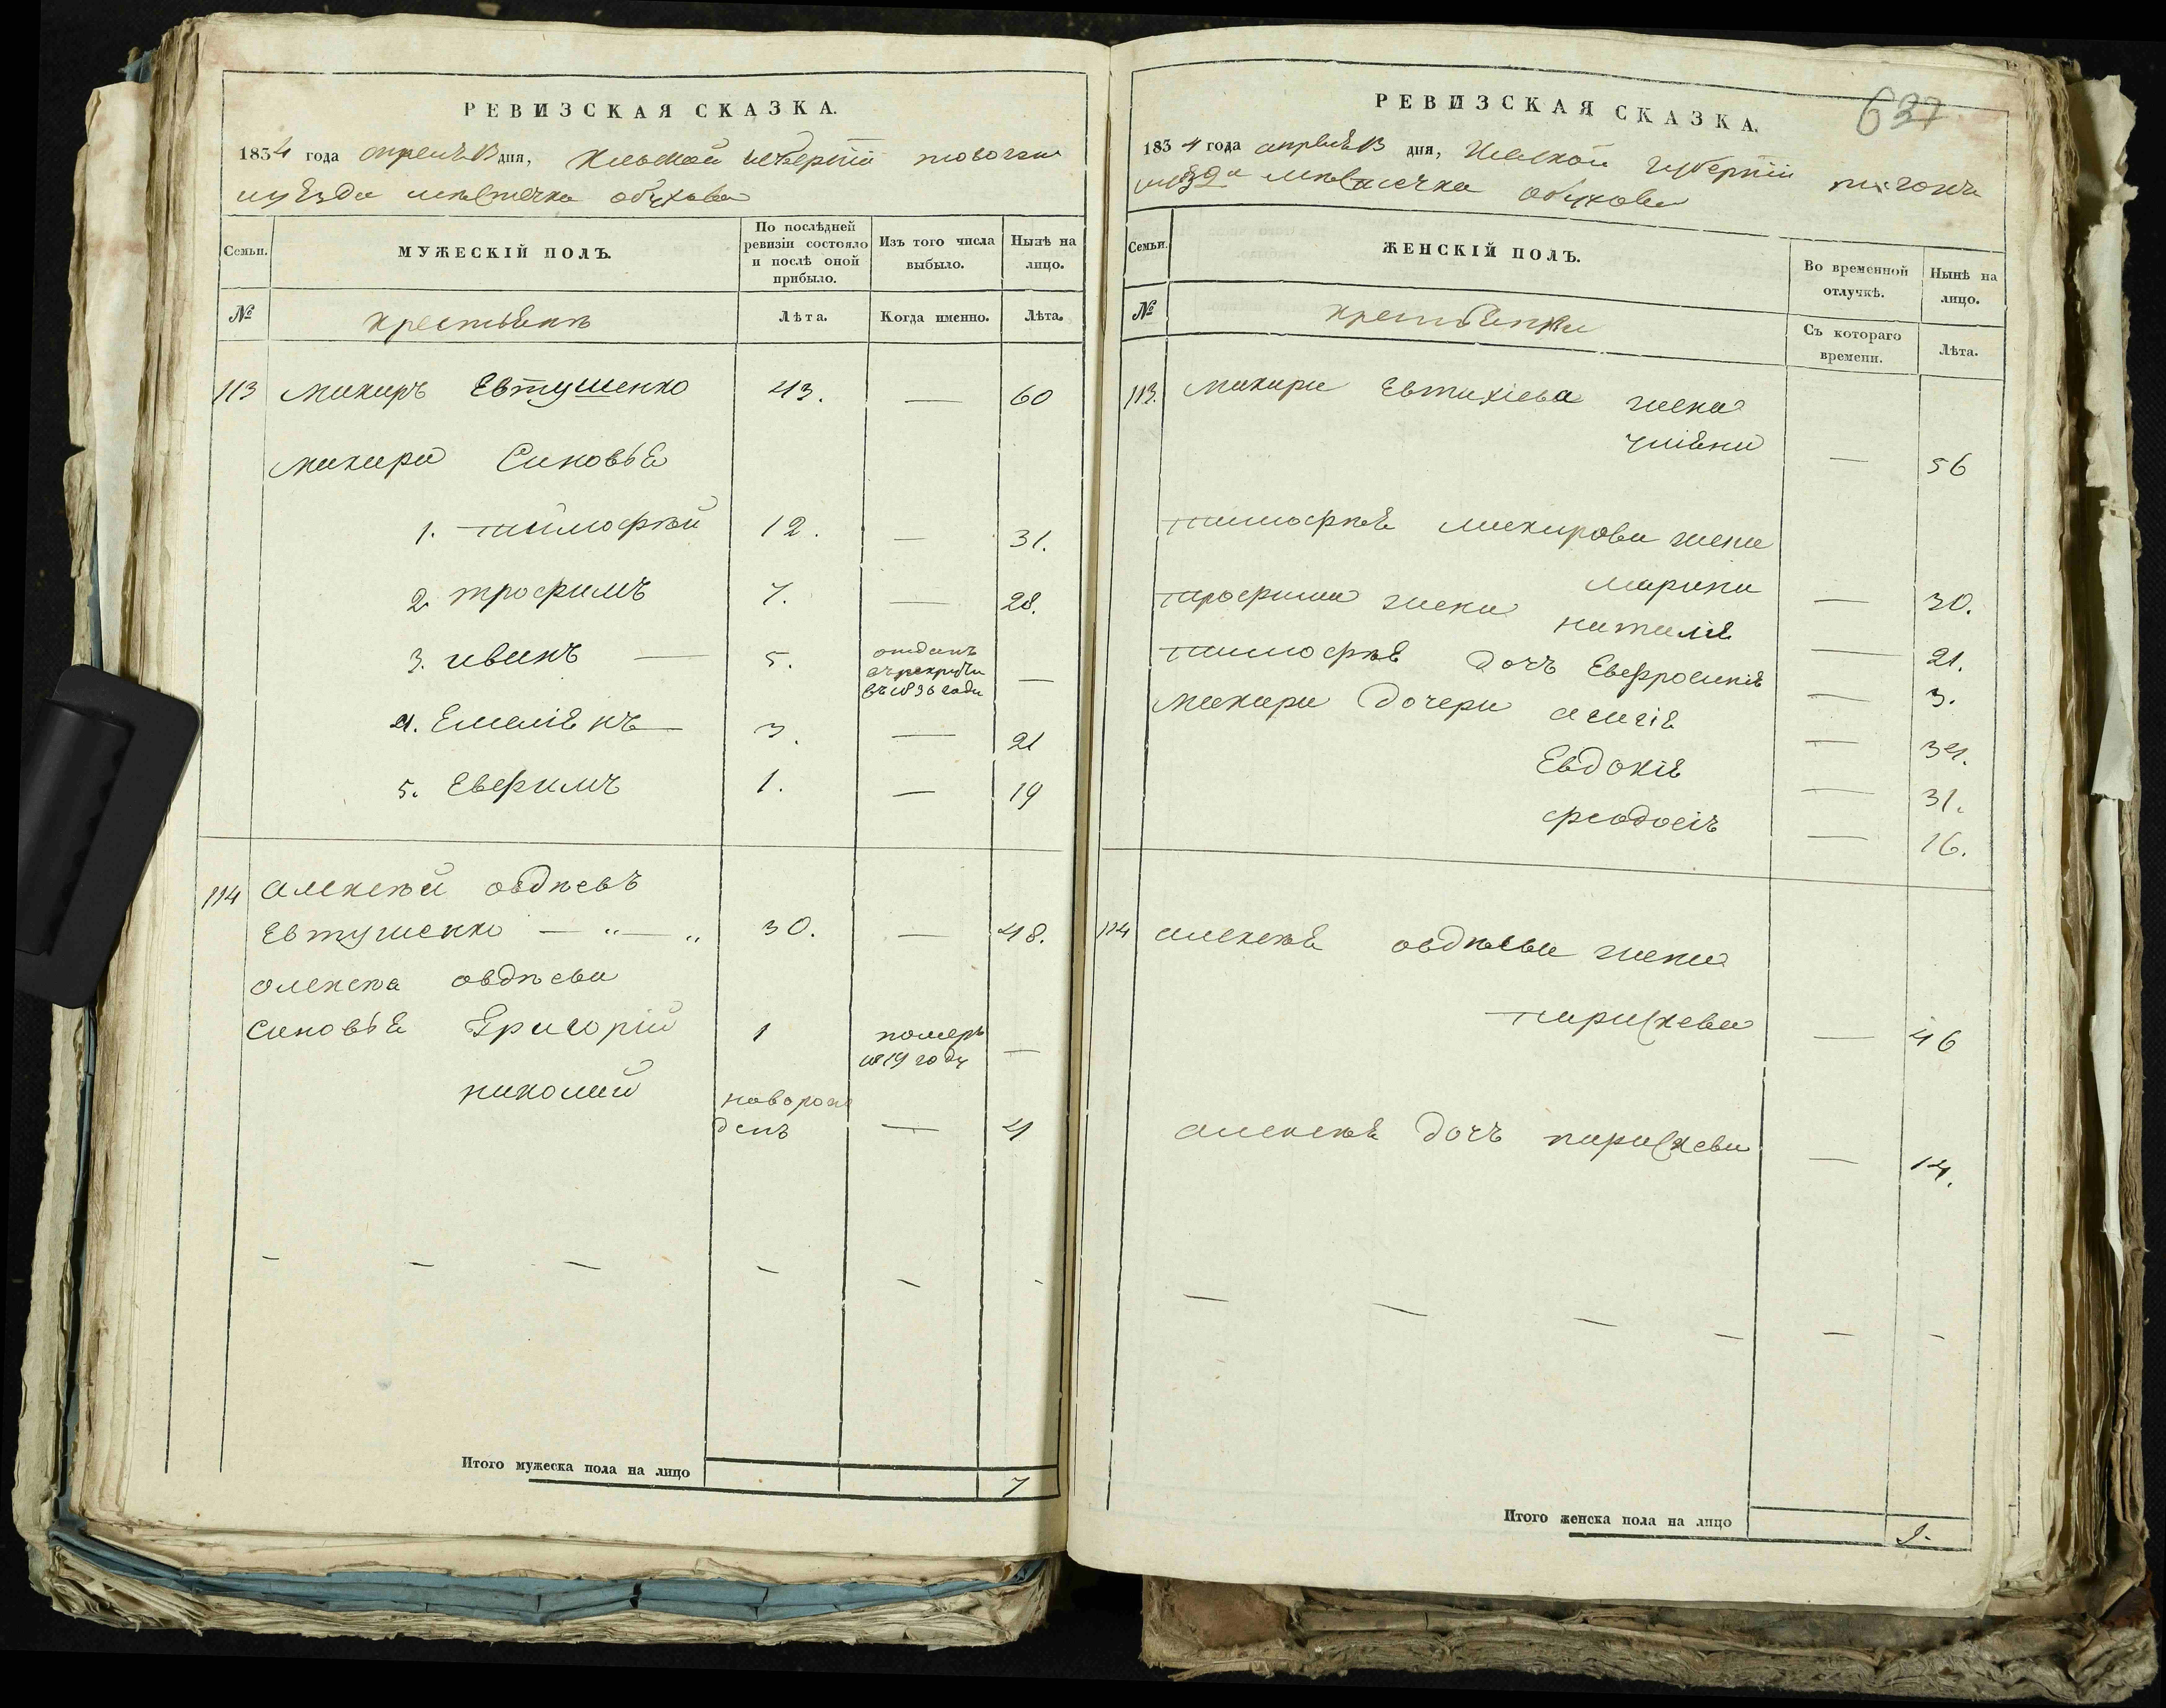 РЕВИЗСКАЯ СКАЗКА.
1834 года апреля 13 дня, Киевской губернии
уезда местечка обухова
Семьи.
МУЖЕСКІЙ ПОЛЪ.
По послѣдней ревизіи состояло и послѣ оной прибыло.
Изъ того числа выбыло.
Нынѣ на лицо.
№
крестьянъ
Лѣта.
Когда именно.
Лѣта.
113 макаръ Евтушенко 43. — 60
макара Синовья
1. тимофѣй 12. — 31.
2. трофимъ 7. — 28.
3. иванъ — 5. отданъ в 1836 году —
4. Емелiянъ — 3. — 21
5. Евфимъ 1. — 19
114 алексѣй овдѣевъ
Евтушенко — „ — „ 30. — 48.
олексѣя овдѣева
синовья Григорій 1 померъ 1819 году —
николай новорожденъ — 4
Итого мужеска пола на лицо 7
637
РЕВИЗСКАЯ СКАЗКА.
1834 года апреля 13 дня, Киевской губернии
уезда местечка обухова
Семьи.
ЖЕНСКІЙ ПОЛЪ.
Во временной отлучкѣ.
Нынѣ на лицо.
№
крестьянки
Съ котораго времени.
Лѣта.
113. макара Евтихіева жена
— 56
тимофѣя макарова жена
марина — 30.
трофима жена наталія — 21.
тимофѣя дочъ Евфросинія — 3.
макара дочери агагія — 34.
Евдокія — 31.
феодосія — 16.
114 алексѣя овдѣева жена
парискева — 46
алексѣя дочъ парискева — 14.
Итого женска пола на лицо 9.